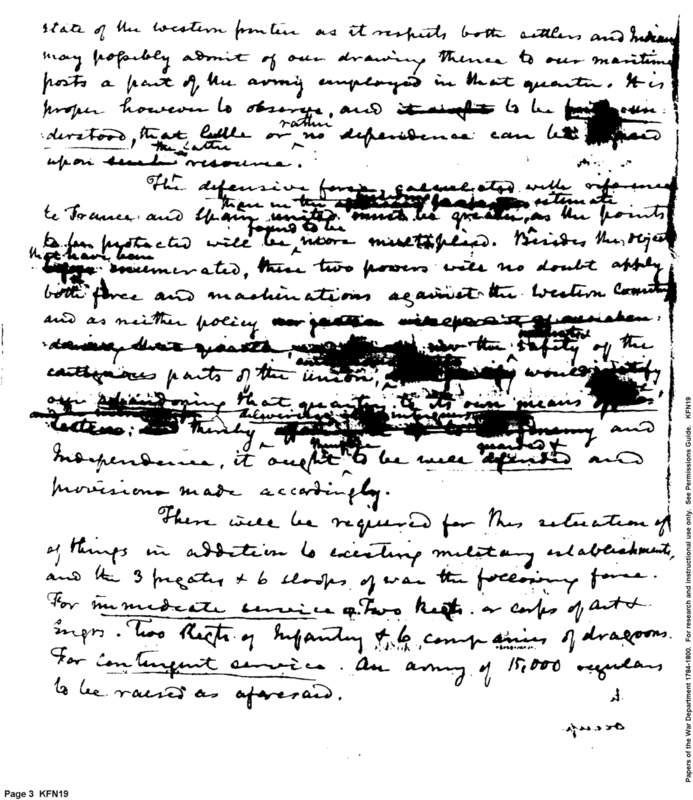 state of the western frontier as it respects both settlers and Indians
may possibly admit of our drawing thence to our maritime
posts a part of the army employed in that quarter. It is
proper however to observe, and it ought to be
derstood, that little or rather no dependence can be
upon the latter resource.
The defensive force, calculated with reference
than in the estimate
to France and Spain united must be greater, as the points
found to be
to be protected will be more multiplied. Besides the objects
that have been
enumerated, these two powers will no doubt apply
both force and machinations against the Western Country
and as neither policy
nor the safety of the
contiguous parts of the union, would justify
our abandoning that quarter to its own means
thereby and
Independence, it ought to be well guarded & defended and
provisions made accordingly.
There will be required for this situation of
of things in addition to existing military establishments,
and the 3 frigates & 6 sloops of war the following force.
For immediate service Two Regts. or corps of Art &
Engrs. Two Regts of Infantry & 6 companies of dragoons.
For contingent service. An army of 15,000 regulars
to be raised as aforesaid.
Page 3 KFN19
Papers of the War Department 1784-1800. For research and instructional use only. See Permissions Guide. KFN19